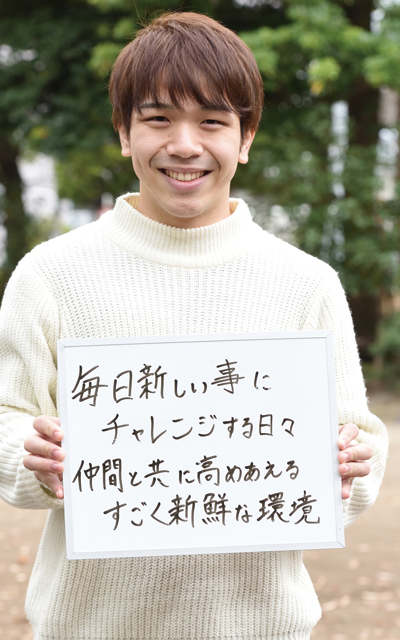 毎日新しい事に
チャレンジする日々
仲間と共に高めあえる
すごく新鮮な環境